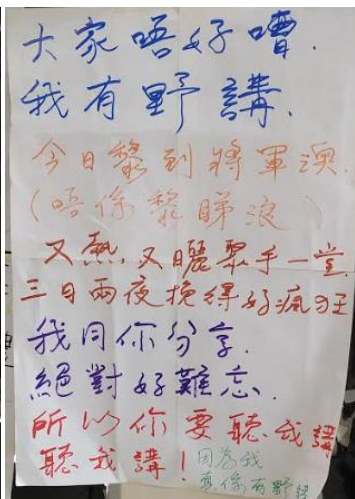 大家唔好嘈.
我有野講.
今日黎到將軍澳.
(唔係黎睇浪)
又熱,又曬聚手一堂.
三日兩夜換得好瘋狂
我同你分享.
絕對好難忘.
所以你要聽我講
聽我講!因為我
真係有野講